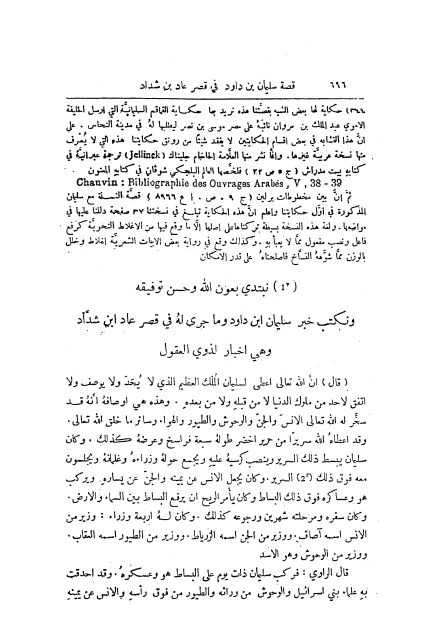 ٦٩٦ قصة سليمان بن داود في قصر عاد بن شداد
٣٦٦) حكاية لها بعض الشبه بقصتنا هذه نريد بها حكاية القماقم السليمانيَّة التي ارسل الخليفة
الاموي عبد الملك بن مروان نائبهُ على مصر موسى بن نصر ليطلبها لهُ في مدينة النحاس. على
انَّ هذا التشابه في بعض اقسام الحكايتين لا يفقد شيئًا من رونق حكايتنا هذه التي لا يُعرف
منها نسخة عربيَّة غيرها. وانَّما نشر منها العلَّامة الحاخام جلينك (Jellinck) ترجمة عبرانيَّة في
كتابه بيت مدراش (ج ٥ ص ٢٢) فلخَّصها العالم البلجيكي شوڤان في كتابه المعنون
Chauvin : Bibliographie des Ouvrages Arabes, V, 38 - 39
ثم انَّ بين مخطوطات برلين (ج ٩ ص ٠ ع ٨٩٦٦) قصَّة النملة مع سليمان
المذكورة في اوَّل حكايتنا واعلم انَّ هذه الحكاية تبلغ في نسختنا ٣٧ صفحة دللنا عليها في
مواضعها. ولغة هذه النسخة بسيطة تركناها على اصلها الَّا ما وقع فيها من الاغلاط النحويَّة كرفع
فاعل ونصب مفعول ممَّا لا يعبأ بهِ. وكذلك وقع في رواية بعض الابيات الشعريَّة اغلاط وخلل
بالوزن ممَّا شوَّههُ النسَّاخ فاصلحناهُ على قدر الامكان
(٢٤) نبتدي بعون الله وحسن توفيقه
ونكتب خبر سليمان ابن داود وما جرى لهُ في قصر عاد ابن شدَّاد
وهي اخبار لذوي العقول
(قال) انَّ الله تعالى اعطى لسليمان المُلك العظيم الذي لا يُحَدّ ولا يوصف ولا
اتفق لاحد من ملوك الدنيا لا من قبله ولا من بعده. وهذه هي اوصافهُ انَّهُ قد
سخَّر لهُ الله تعالى الانس والجنّ والوحوش والطيور والهواء وسائر ما خلق الله تعالى.
وقد اعطاهُ الله سريرًا من حرير اخضر طولهُ سبعة فراسخ وعرضهُ كذلك. وكان
سليمان يبسط ذلك السرير وينصب كرسيهُ عليهِ ويجمع حولهُ وزراءهُ وغلمانهُ ويجلسون
معه فوق ذلك (٢٢) السرير. وكان يجعل الانس عن يمينهِ والجنّ عن يسارهِ ويركب
هو وعساكرهُ فوق ذلك البساط وكان يأمر الريح ان يرفع البساط بين السماء والارض.
وكان سفرهُ ومرحلتهُ شهرين ورجوعهُ كذلك. وكان لهُ اربعة وزراء: وزير من
الانس اسمه آصاف. ووزير من الجن اسمه الزرباط. ووزير من الطيور اسمه العقاب.
ووزير من الوحوش وهو الاسد
قال الراوي: فركب سليمان ذات يوم على البساط هو وعسكرهُ. وقد احدقت
بهِ علماء بني اسرائيل والوحوش من ورائه والطيور من فوق رأسهِ والانس عن يمينهِ